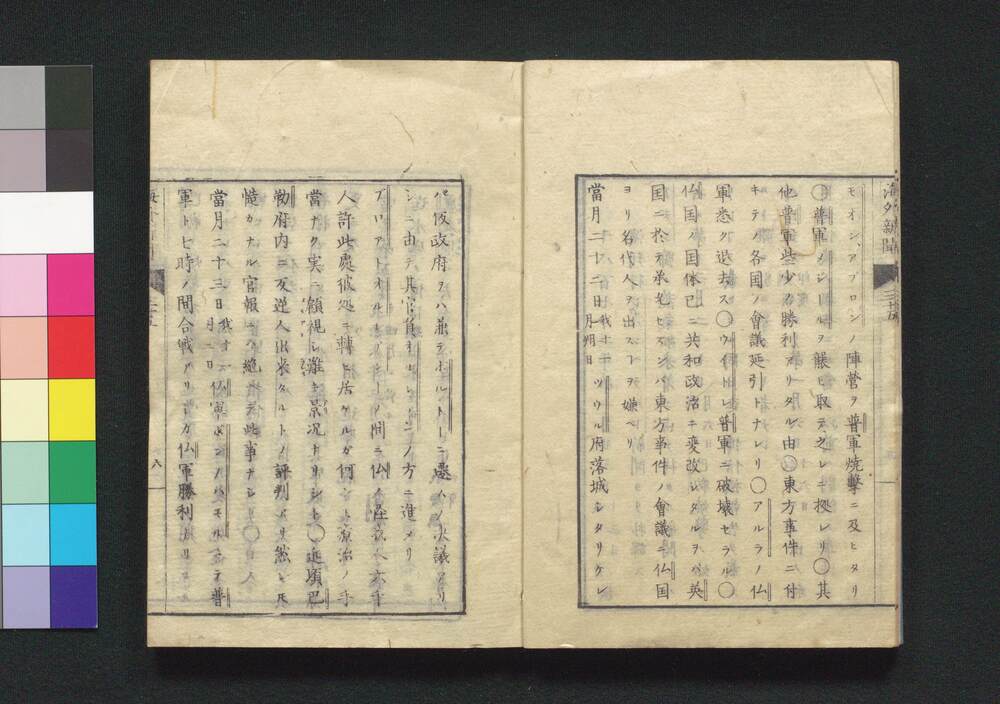 海外新聞
モオン、アブロン ノ陣營ヲ普軍焼撃ニ及ヒタリ
〇普軍 ヲ乗取テ之レニ拠レリ〇其
他普軍些少カ勝利アリタル由〇東方事件ニ付
キテノ各国ノ會議延引トナレリ〇アルラノ仏
軍巻ク退去ス〇 普軍ニ破壊セラル〇
仏国ノ国体已ニ共和政治ニ変改シタルヲ以英
国ニ於テ承允セズンバ東方事件ノ會議ニ仏国
ヨリ名代人ヲ出スヿヲ嫌ベリ
當月二十二日 我十一月朔日 ツウル府落城シタリケレ
バ仮政府ヲバ兼テボルトーニ遷ハノ決議アリ
シニ由テ其官員 ノ方ニ進メリ
アロアトオルレアン ノ間ニ仏ノ怪我人六千
人許此處彼処ニ轉ビ居ケルガ何レモ療治ノ手
當ナク実ニ顧視シ難キ景况ナリシト〇近頃巴
勒府内ニ反逆人出来タルトノ評判アリ然レ圧
慥カナル官報ニハ絶テ此事ナシ〇
當月二十三日 仏軍 ニテ普
軍ト七時ノ間合戦アリシカ仏軍勝利
六